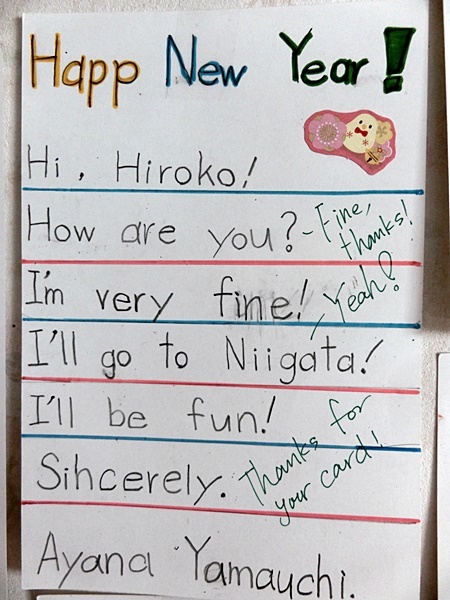 Happ New Year!
Hi, Hiroko!
How are you? - Fine, thanks!
I'm very fine! - Yeah?
I'll go to Niigata!
I'll be fun!
Sihcerely. Thanks for your card!
Ayana Yamauchi.